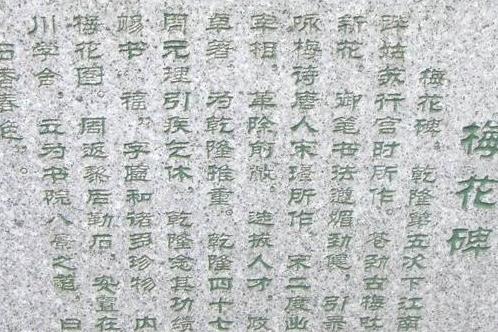 梅花碑
梅花碑。乾隆第五次下江南
跸姑苏行宫时所作。苍劲古梅吐
新花 御笔书法遒媚劲健。引录
咏梅诗唐人宋璟所作 宋二度出
宰相。革除前敝。选拔人才。政
卓著 为乾隆推重。乾隆四十七
周元理引疾乞休。乾隆念其功绩
赐书 福。字匾和诸多珍物 内
梅花图。周返黎后勒石 置在
川学舍。立为书院八景之首。曰